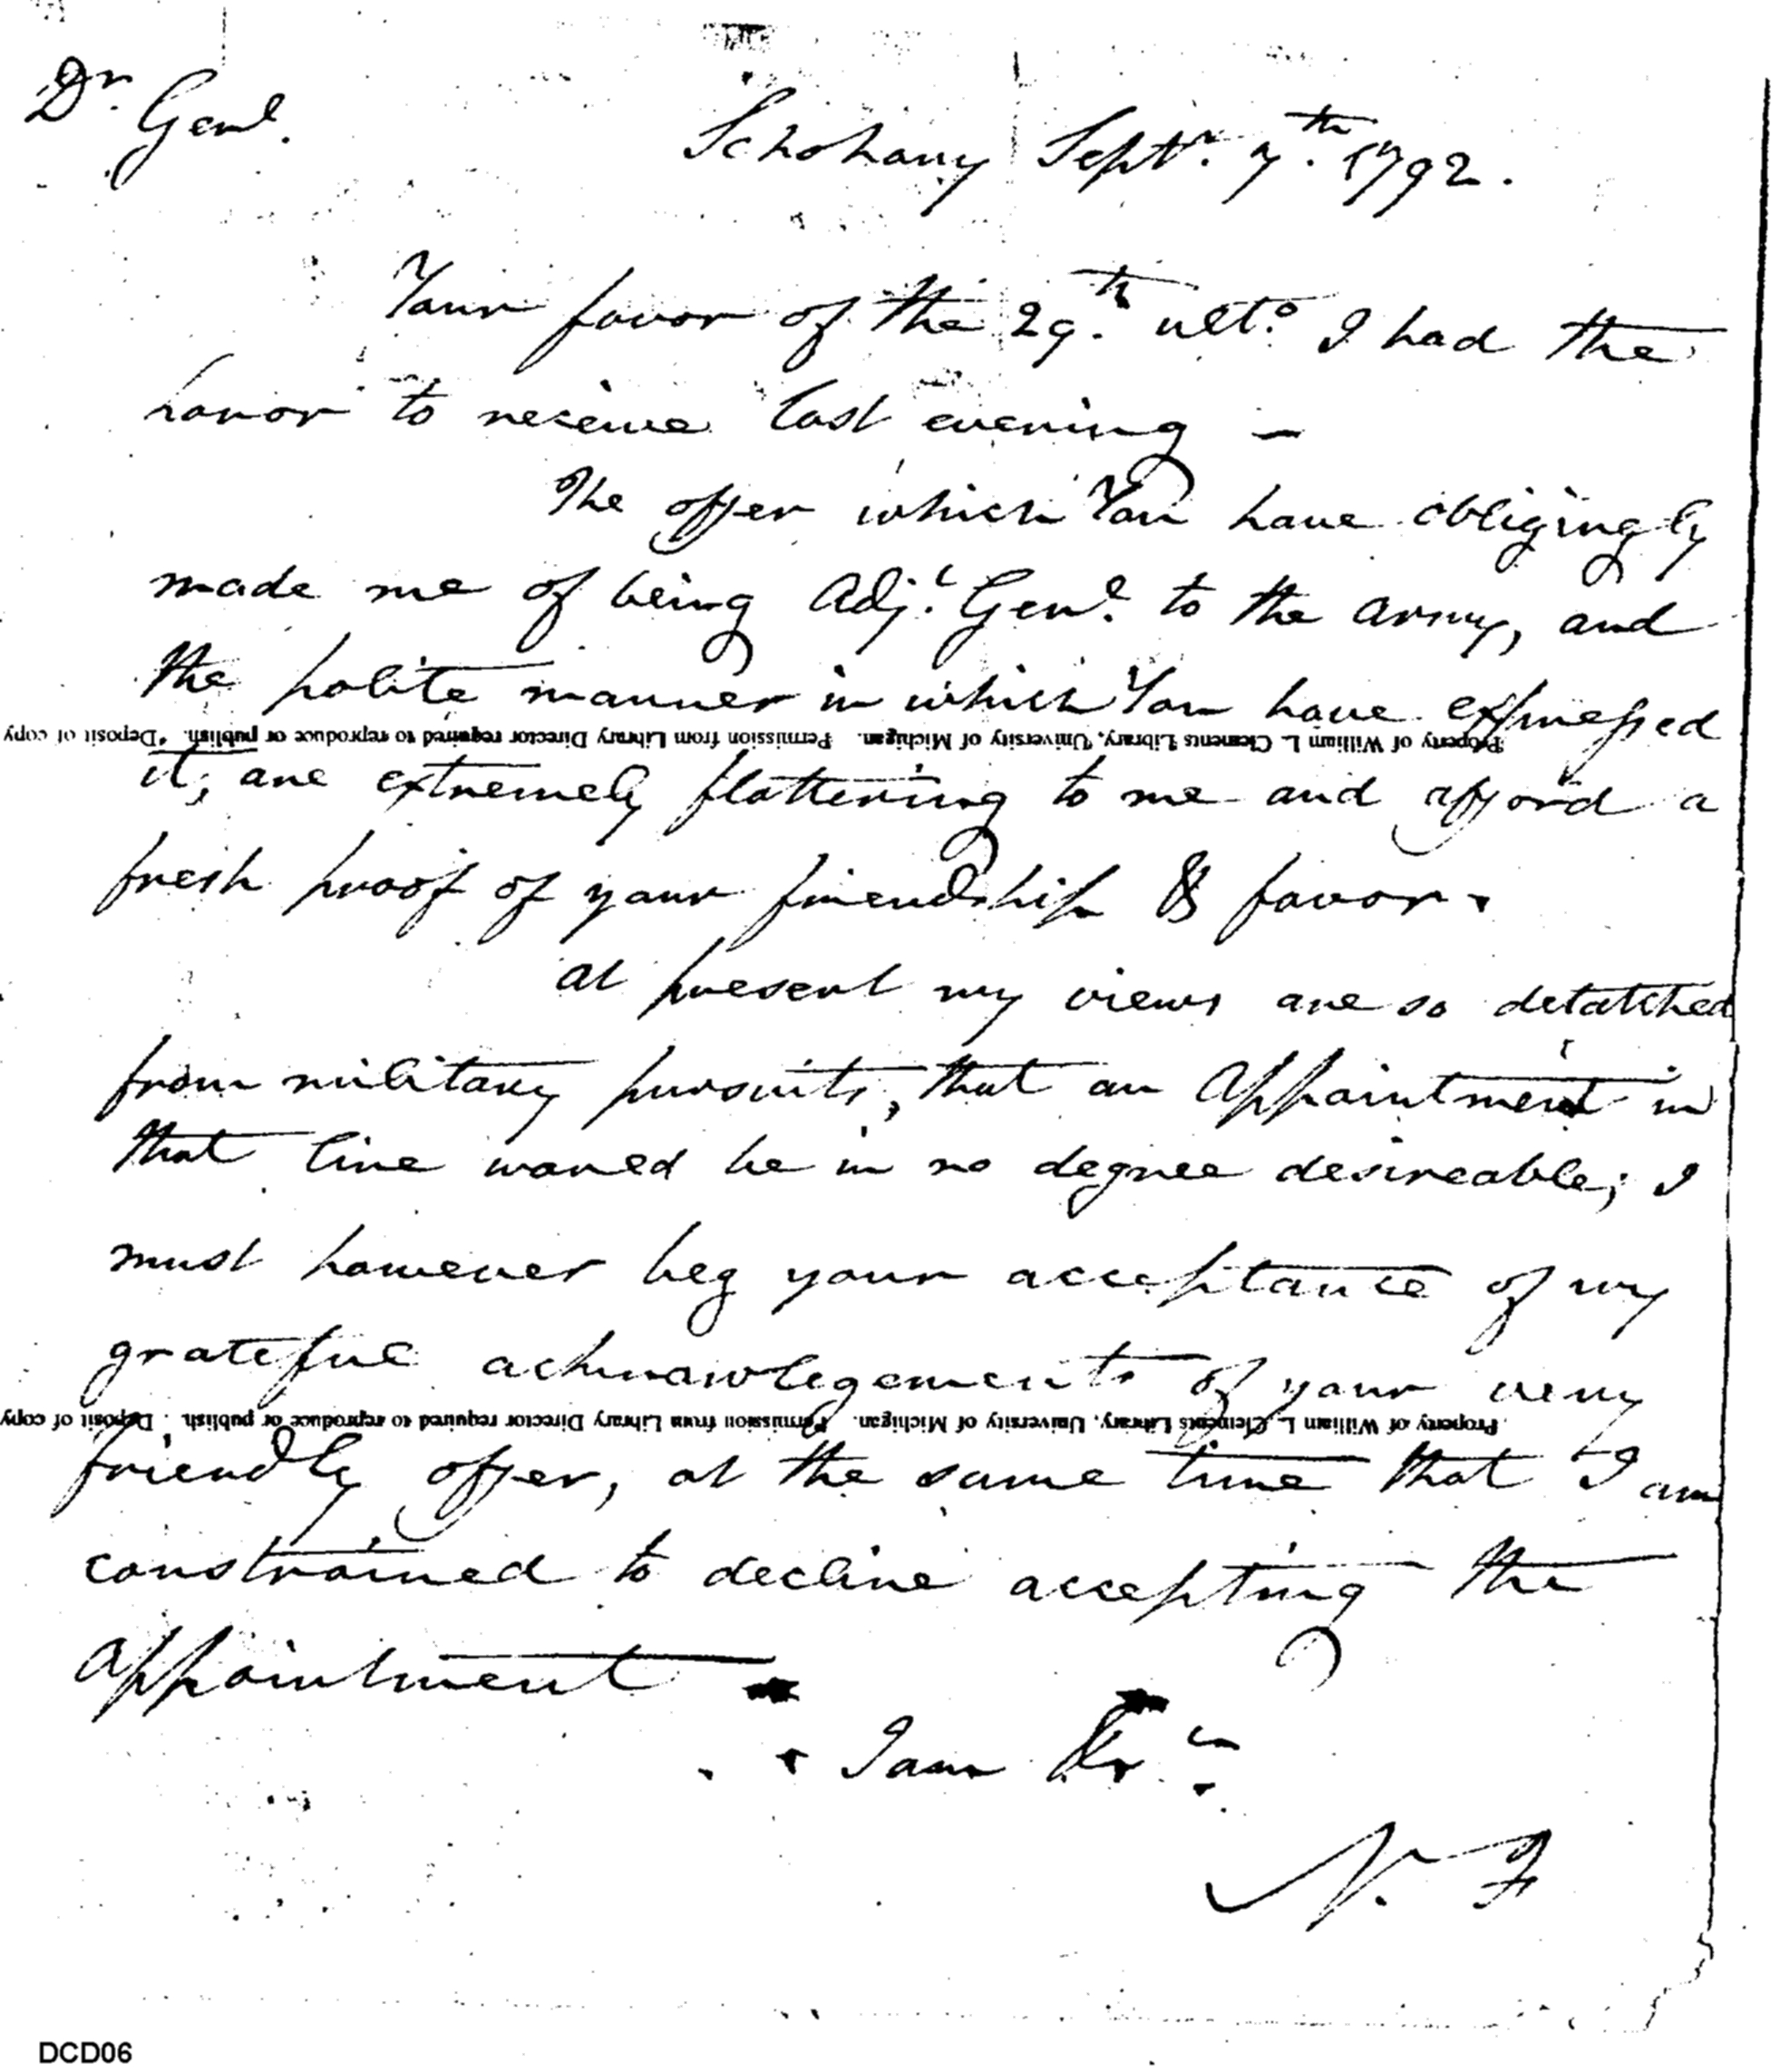 Dr. Genl.
Schohary Septr. 7.th 1792.
Your favor of the 29.th ulto. I had the
honor to receive last evening —
The offer which You have obligingly
made me of being Adj.t Gen.l to the army, and
the polite manner in which You have expressed
Property of William L. Clements Library, University of Michigan. Permission from Library Director required to reproduce or publish. Deposit of copy
it, are extremely flattering to me and afford a
fresh proof of your friendship & favor.
At present my views are so detatched
from military pursuits, that an appointment in
that line would be in no degree desireable; I
must however beg your acceptance of my
grateful acknowlegements of your very
Property of William L. Clements Library, University of Michigan. Permission from Library Director required to reproduce or publish. Deposit of copy
friendly offer, at the same time that I am
constrained to decline accepting the
appointment
I am &c
N. F
DCD06